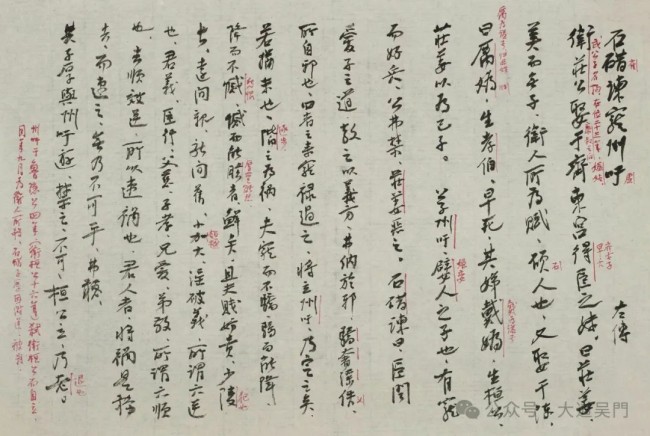 石碏諫寵州吁 左傳
衛莊公娶于齊東宮得臣之妹，曰莊姜，
美而無子，衛人所為賦，碩人也，又娶于陳，
曰厲媯，生孝伯，早死，其娣戴媯，生桓公，
莊姜以為己子。州吁，嬖人之子也，有寵
而好兵，公弗禁，莊姜惡之。石碏諫曰臣聞
愛子之道，教之以義方，弗納於邪，驕奢淫佚，
所自邪也，四者之來，寵祿過之，將立州吁，乃定之矣，
若猶未也，階之為禍，夫寵而不驕，驕而能降，
降而不憾，憾而能眕者鮮矣，且夫賤妨貴，少陵
長，遠間親，新間舊，小加大，淫破義，所謂六逆
也，君義，臣行，父慈，子孝，兄愛，弟敬，所謂六順
也，去順效逆，所以速禍也，君人者，將禍是務
去，而速之，無乃不可乎，弗聽，
其子厚與州吁游，禁之，不可，桓公立，乃老。
州吁于魯隱公四年（衛桓公十六年）弒衛桓公而自立，
同年九月為衛人所殺
公众号·大道吴門